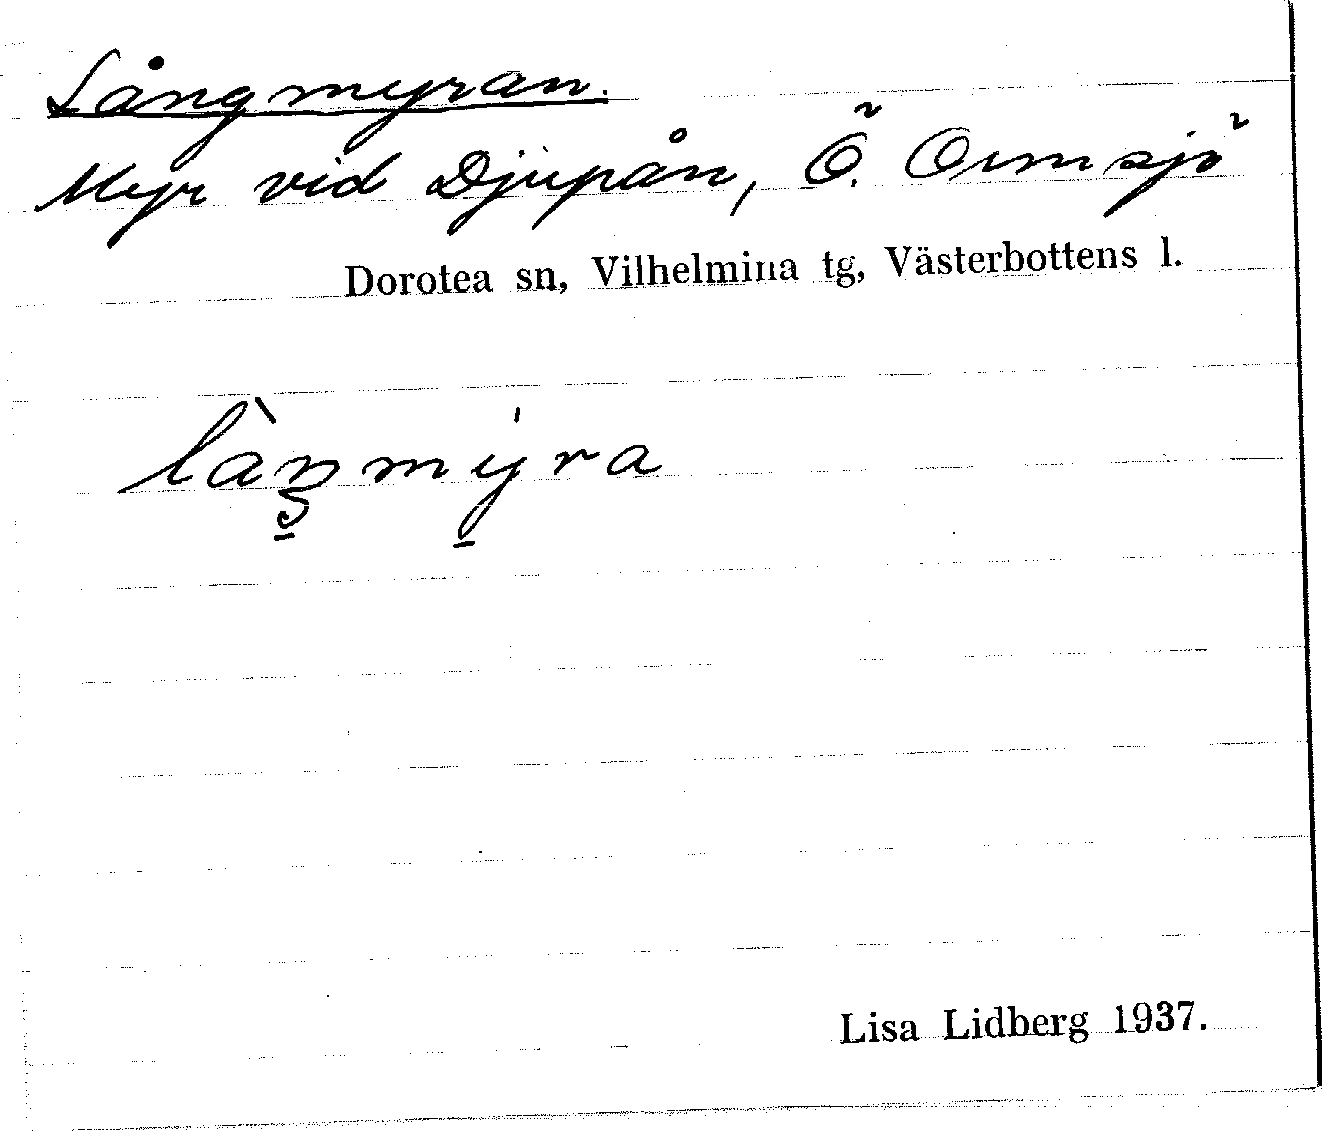 Långmyran.
Myr vid Djupån, Ö. Ormsjö
Dorotea sn, Vilhelmina tg, Västerbottens l.
làŋmýra
Lisa Lidberg 1937.